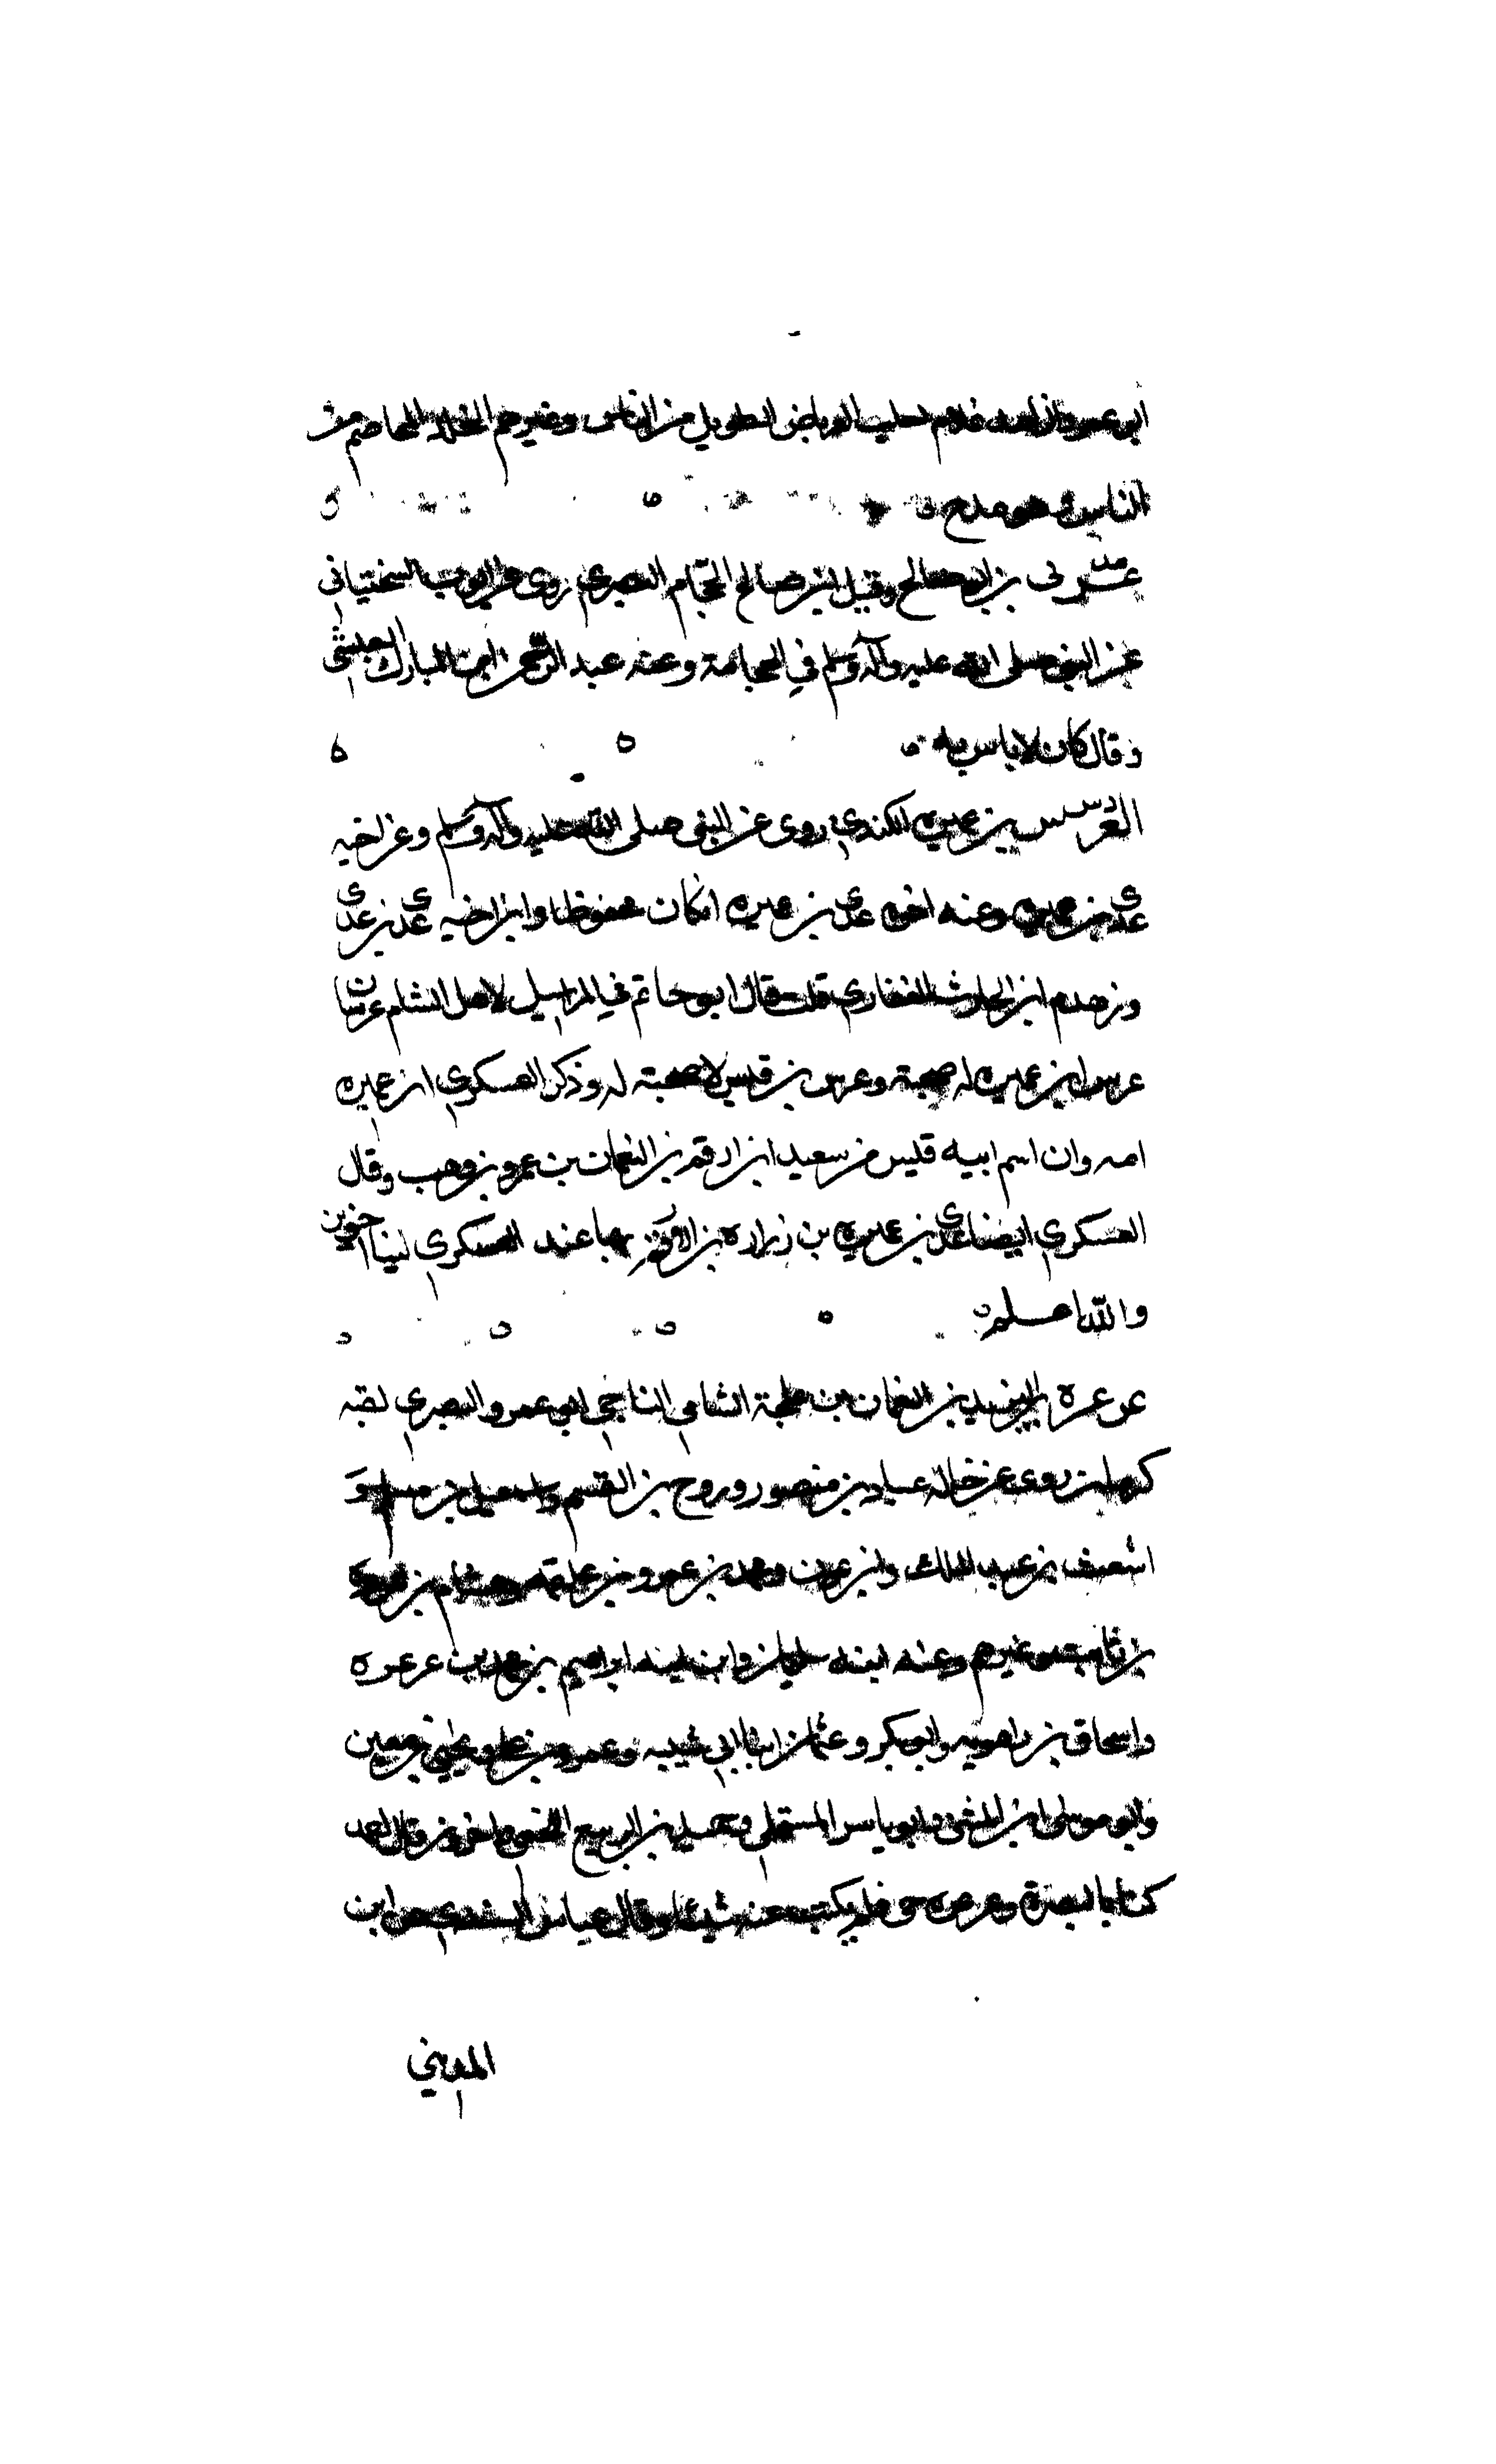 العرباض الطويل من الناس وغيرهم المخاصم من
الناس وهو مدح
عرس بن ابي صالح وقيل ابن صالح الحجام البصري روى عن ايوب السختياني
عن النبي صلى الله عليه وآله وسلم في الحجامة وعنه عبد الرحمن ابن المبارك العيشي
وقال كان لا باس به
العرس بن عميرة الكندي روى عن النبي صلى الله عليه وآله وسلم وعن اخيه
عدى بن عميرة وعنه اخوه عدى بن عميره ان كان محفوظا وابن اخيه عدى بن عدى
وزهدم ابن الحارث الغفاري قلت قال ابو حاتم في المراسيل لاهل الشام عرسان
عرس ابن عميره له صحبة وعرس بن قيس لا صحبة له وذكر العسكري ان عميره
امه وان اسم ابيه قيس من سعيد ابن ارقم بن النعمان بن عمرو بن وهب وقال
العسكري ايضا عدى بن عميره بن زراره بن الارقم فهما عند العسكري ليسا اخوين
والله اعلم
عرعرة بن البرند بن النعمان بن علجة الشامي الناجي ابو عمرو البصري لقبه
كزمان روى عن خاله عباد بن منصور وروح بن القسم واسمعيل بن مسلم و
اشعث بن عبد الملك وابن عون ومحمد بن عمرو بن علقمه وهشام بن
بن ثابت وغيرهم وعنه ابنه سليمان وابن ابنه ابراهيم بن محمد بن عرعره
واسحاق بن راهويه وابو بكر وعثمان ابنا ابي شيبه وعمرو بن علي ويحيى بن معين
وابو موسى ابن المثنى وابو ياسر المستملي وحميد بن الربيع واخرون قال احمد
كنا بالبصرة وعرعره حي فلم نكتب عنه شيئا وقال عباس السندي عن ابن
المديني